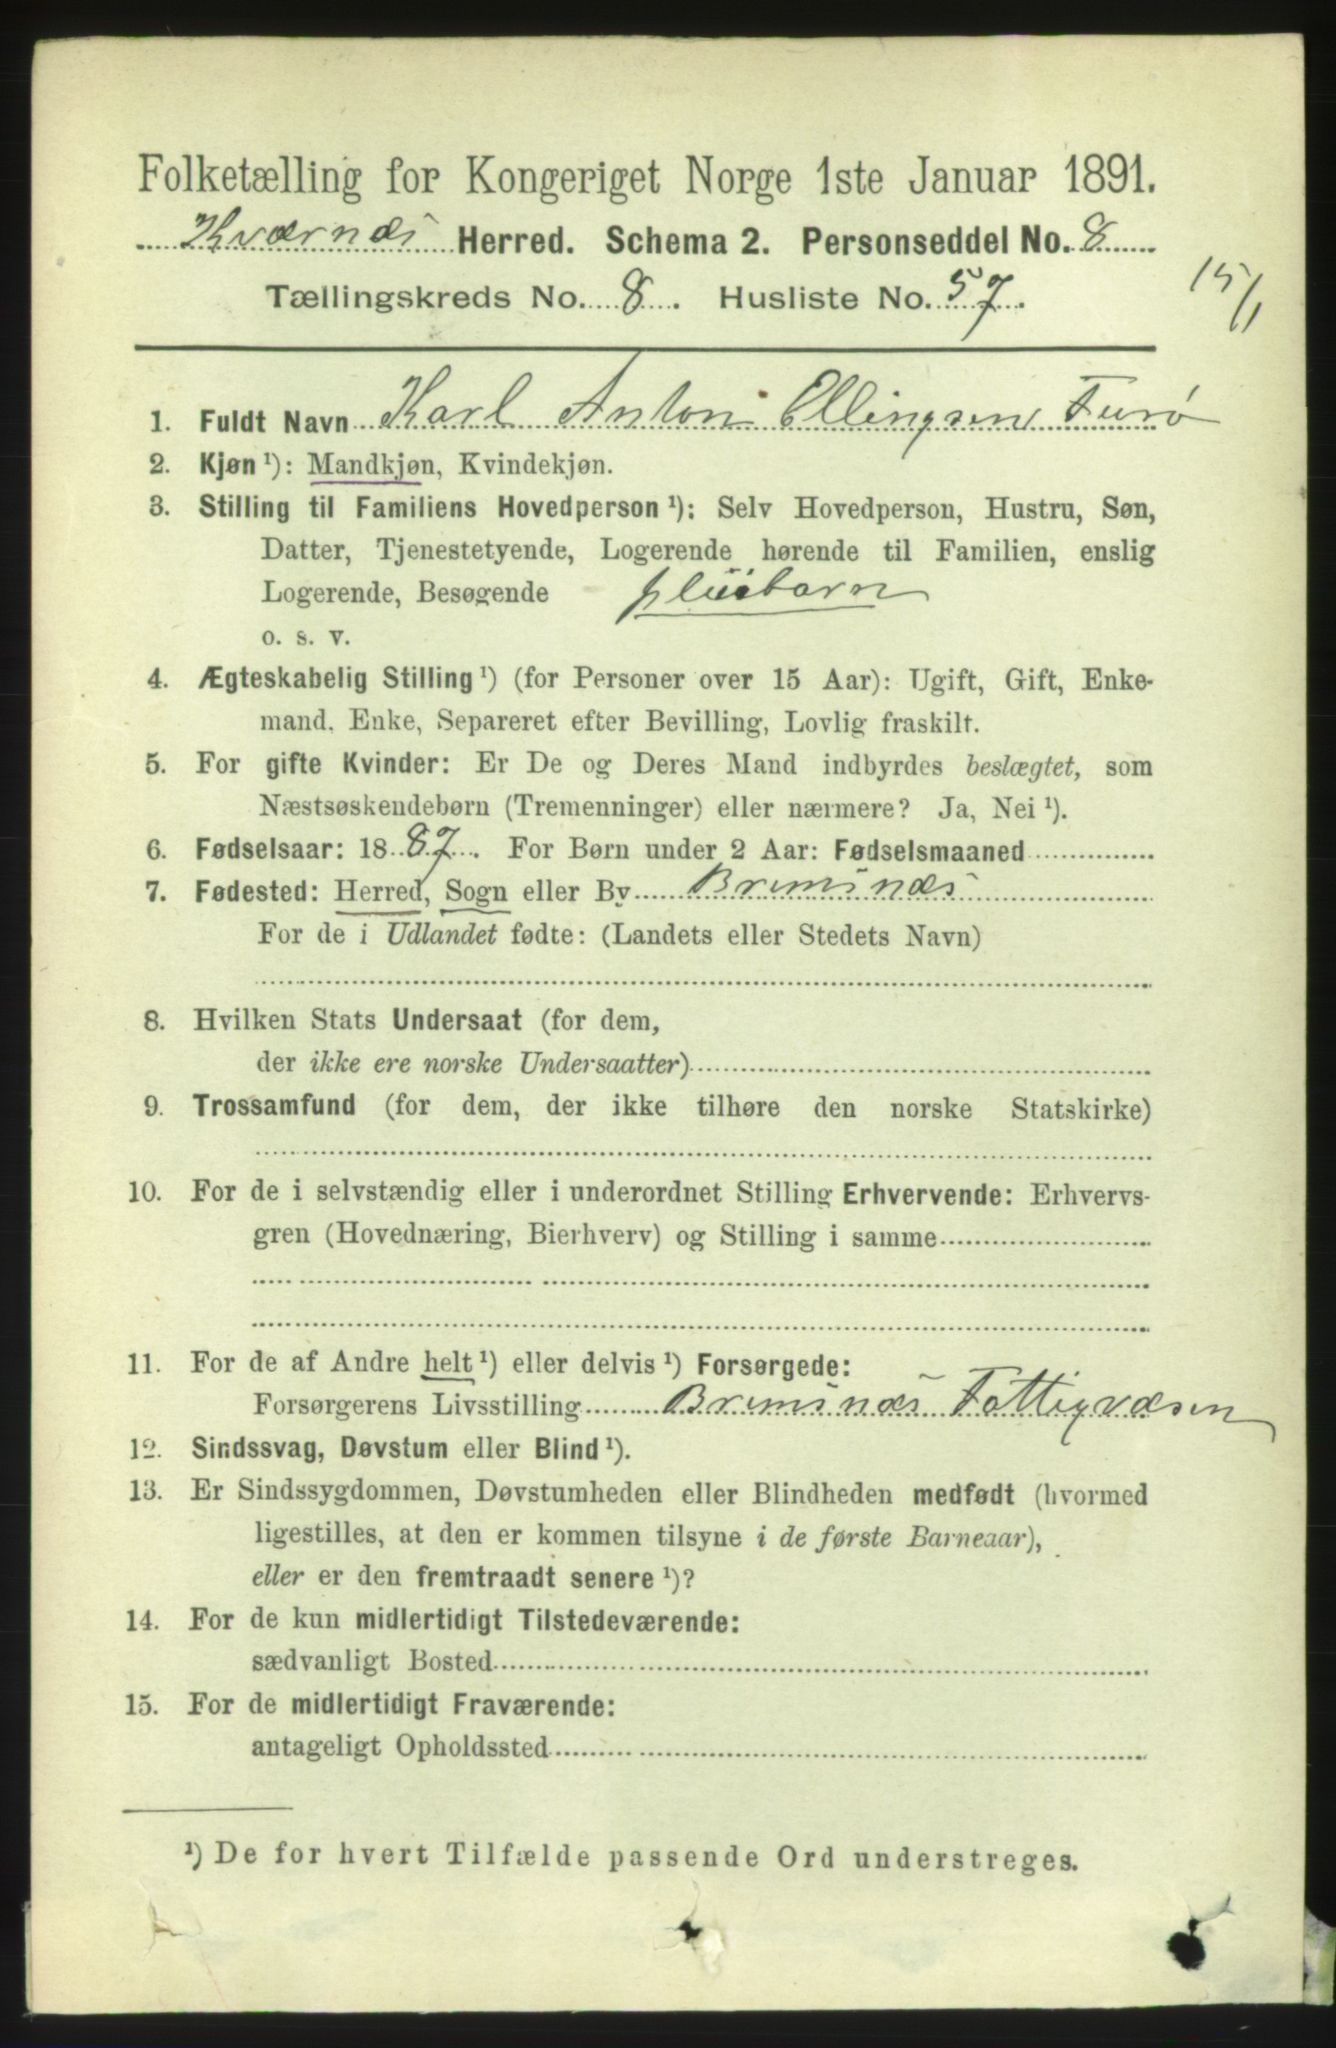 Folketælling for Kongeriget Norge 1ste Januar 1891.
Kværnæs Herred. Schema 2. Personseddel No. 8
Tællingskreds No. 8. Husliste No. 57.
15/1
1. Fuldt Navn Karl Anton Ellingsen Furø
2. Kjøn ¹): Mandkjøn, Kvindekjøn.
3. Stilling til Familiens Hovedperson ¹): Selv Hovedperson, Hustru, Søn,
Datter, Tjenestetyende, Logerende hørende til Familien, enslig
Logerende, Besøgende pleiebarn
o. s. v.
4. Ægteskabelig Stilling ¹) (for Personer over 15 Aar): Ugift, Gift, Enke-
mand, Enke, Separeret efter Bevilling, Lovlig fraskilt.
5. For gifte Kvinder: Er De og Deres Mand indbyrdes beslægtet, som
Næstsøskendebørn (Tremenninger) eller nærmere? Ja, Nei ¹).
6. Fødselsaar: 1887. For Børn under 2 Aar: Fødselsmaaned
7. Fødested: Herred, Sogn eller By Bremsnæs
For de i Udlandet fødte: (Landets eller Stedets Navn)
8. Hvilken Stats Undersaat (for dem,
der ikke ere norske Undersaatter)
9. Trossamfund (for dem, der ikke tilhøre den norske Statskirke)
10. For de i selvstændig eller i underordnet Stilling Erhvervende: Erhvervs-
gren (Hovednæring, Bierhverv) og Stilling i samme
11. For de af Andre helt ¹) eller delvis ¹) Forsørgede:
Forsørgerens Livsstilling Bremsnæs Fattigvæsen
12. Sindssvag, Døvstum eller Blind ¹).
13. Er Sindssygdommen, Døvstumheden eller Blindheden medfødt (hvormed
ligestilles, at den er kommen tilsyne i de første Barneaar),
eller er den fremtraadt senere ¹)?
14. For de kun midlertidigt Tilstedeværende:
sædvanligt Bosted
15. For de midlertidigt Fraværende:
antageligt Opholdssted
¹) De for hvert Tilfælde passende Ord understreges.